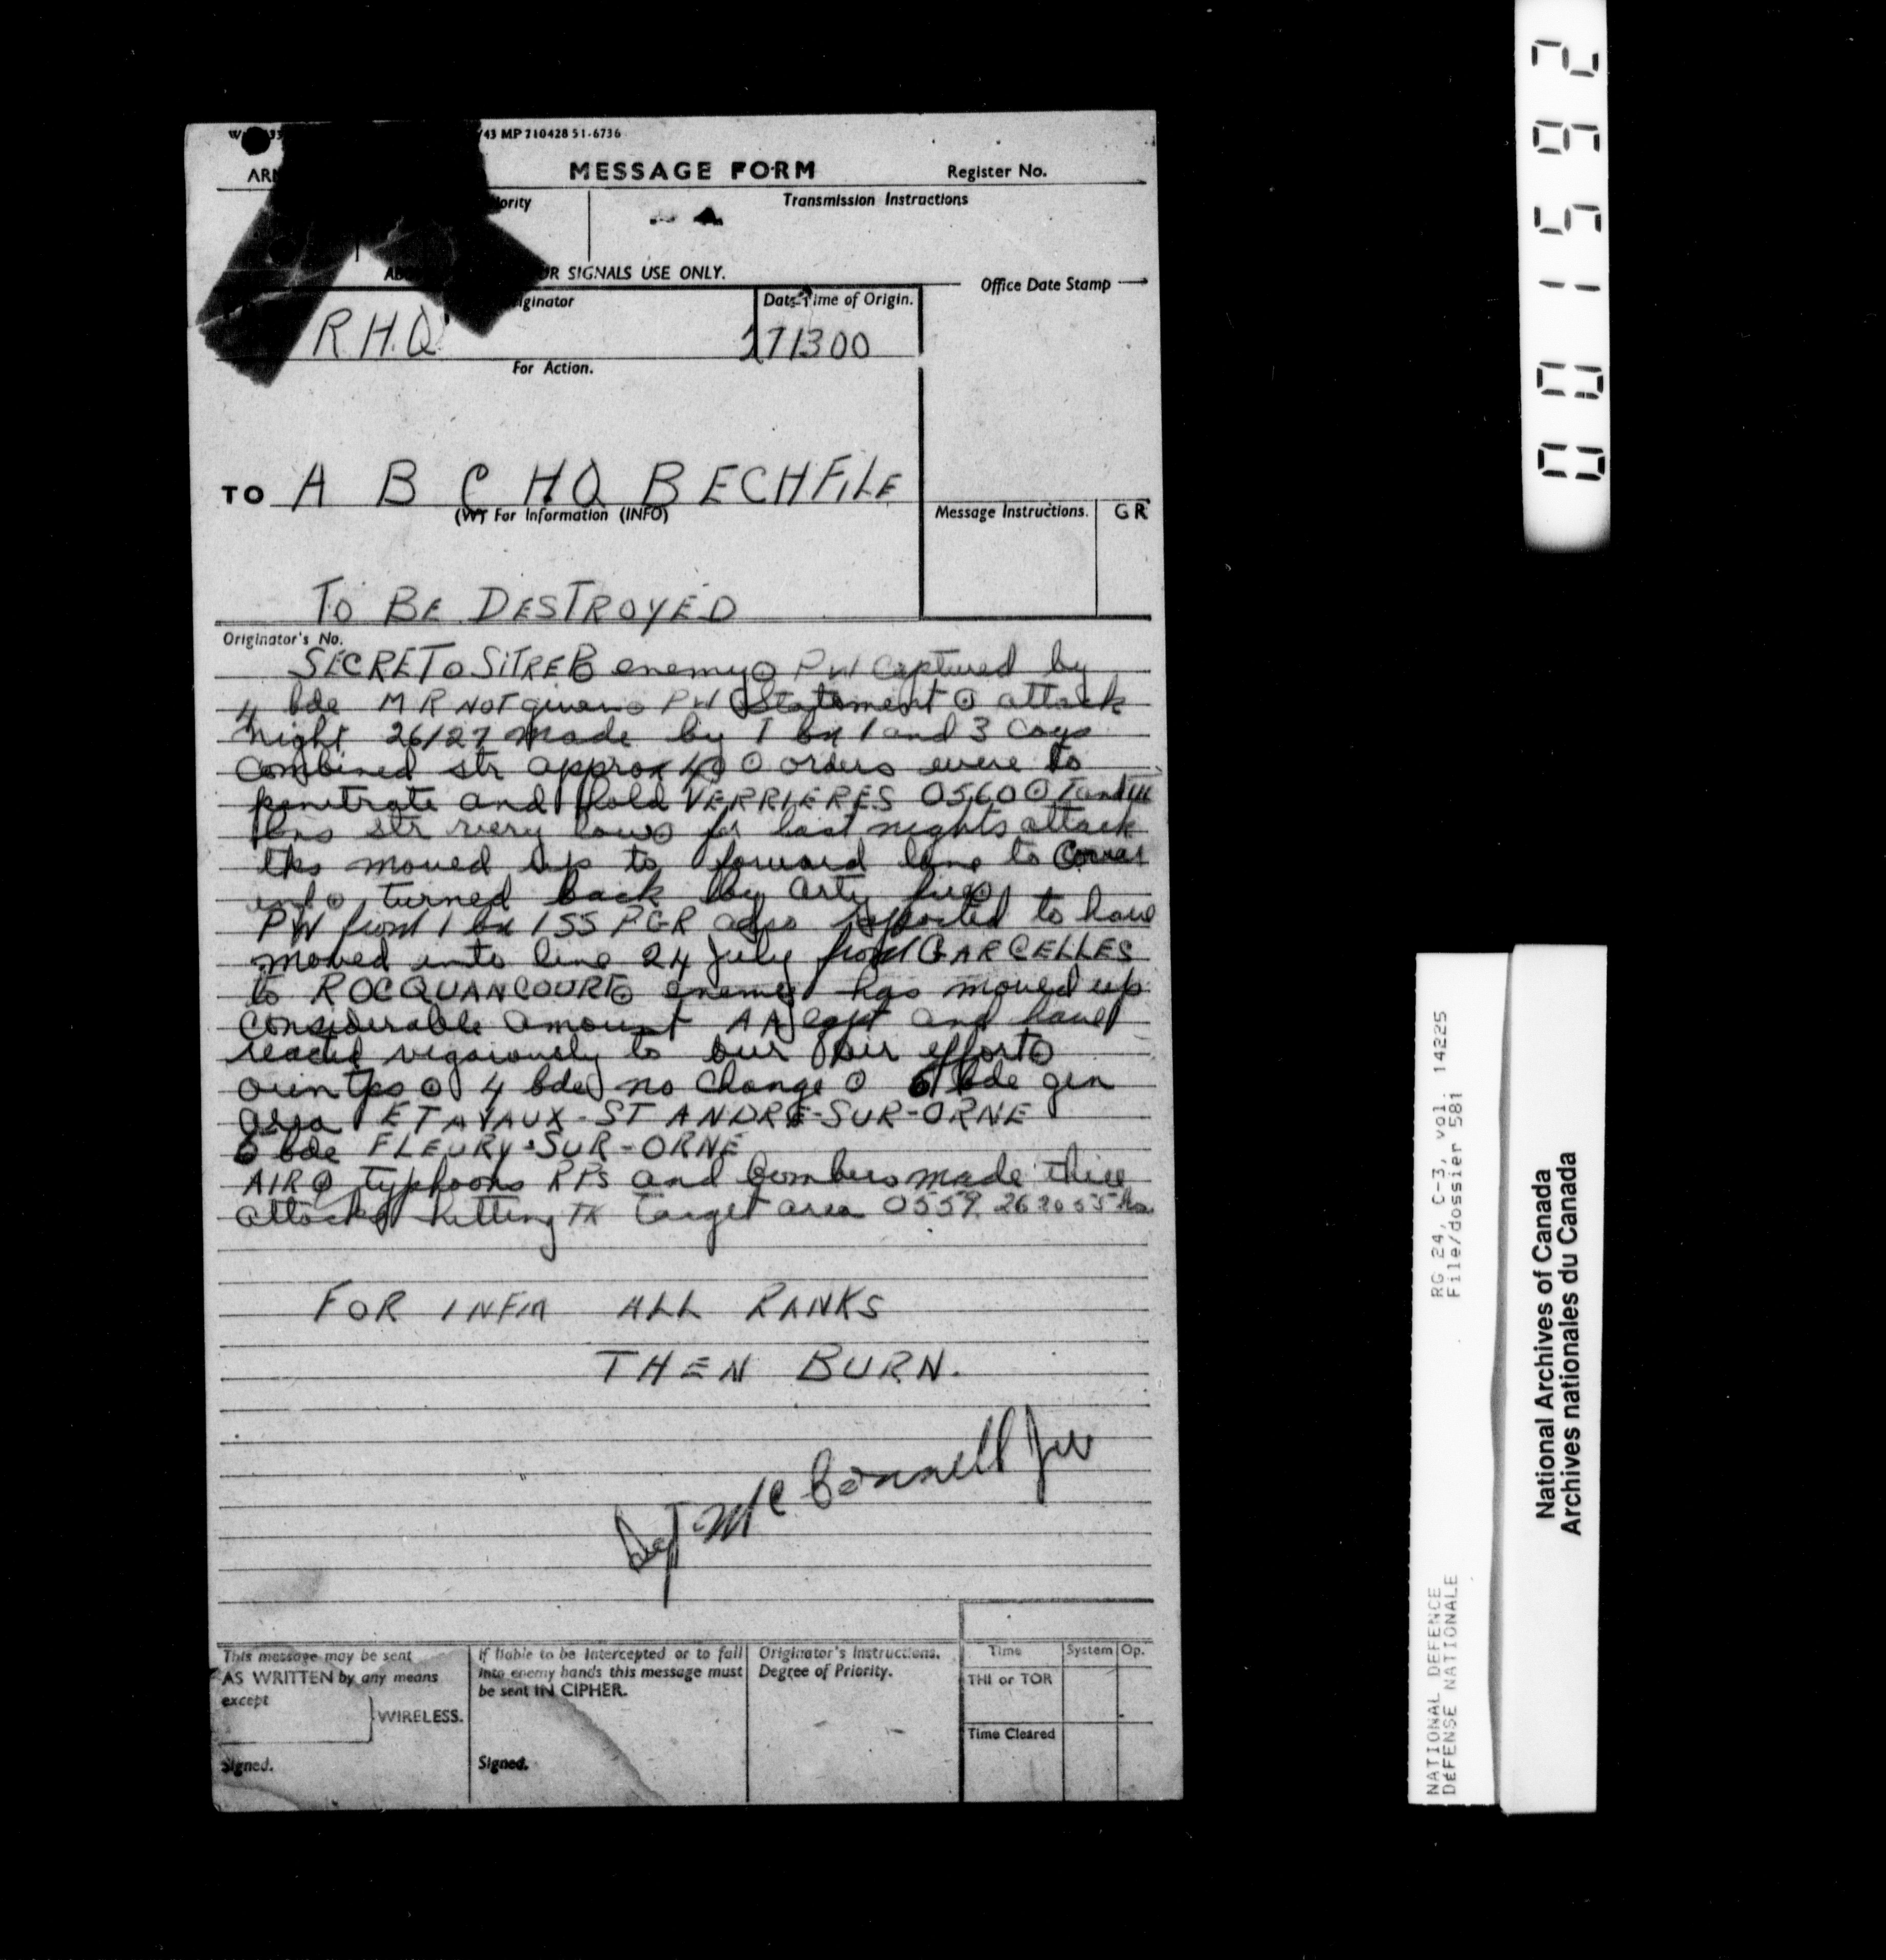 43 MP 710428 51-6736
MESSAGE FORM
Register No.
Transmission Instructions
SIGNALS USE ONLY.
Office Date Stamp →
Date-Time of Origin.
R.H.Q.
271300
For Action.
TO A B C HQ B ECH FILE
(W) For Information (INFO)
Message Instructions. GR
TO BE DESTROYED
Originator's No.
SECRET ⊙ SITREP ⊙ enemy ⊙ PW captured by
4 bde M R NOT given ⊙ PW Statement ⊙ attack
night 26/27 made by 1 bn 1 and 3 Coys
Combined str approx 40 ⊙ orders were to
penetrate and hold VERRIERES 0560 ⊙ I and III
bns str very low ⊙ for last nights attack
tks moved up to forward line to cover
inf ⊙ turned back by arty fire ⊙
PW from 1 bn 1 SS PGR also reported to have
moved into line 24 July from GARCELLES
to ROCQUANCOURT ⊙ enemy has moved up
considerable amount AA eqpt and have
reacted vigorously to our air effort ⊙
own tps ⊙ 4 bde no change ⊙ 5 bde gen
area ETAVAUX-ST ANDRE-SUR-ORNE
6 bde FLEURY-SUR-ORNE
AIR ⊙ typhoons RPs and bombers made
attacks hitting TK target area 0559 262055 hrs
FOR INFM ALL RANKS
THEN BURN.
McConnell
This message may be sent
AS WRITTEN by any means
except
WIRELESS.
Signed.
If liable to be intercepted or to fall
into enemy hands this message must
be sent IN CIPHER.
Signed.
Originator's Instructions.
Degree of Priority.
Time System Op.
THI or TOR
Time Cleared
0001592
RG 24, C-3, vol. 14225
File/dossier 581
NATIONAL DEFENCE
DÉFENSE NATIONALE
National Archives of Canada
Archives nationales du Canada